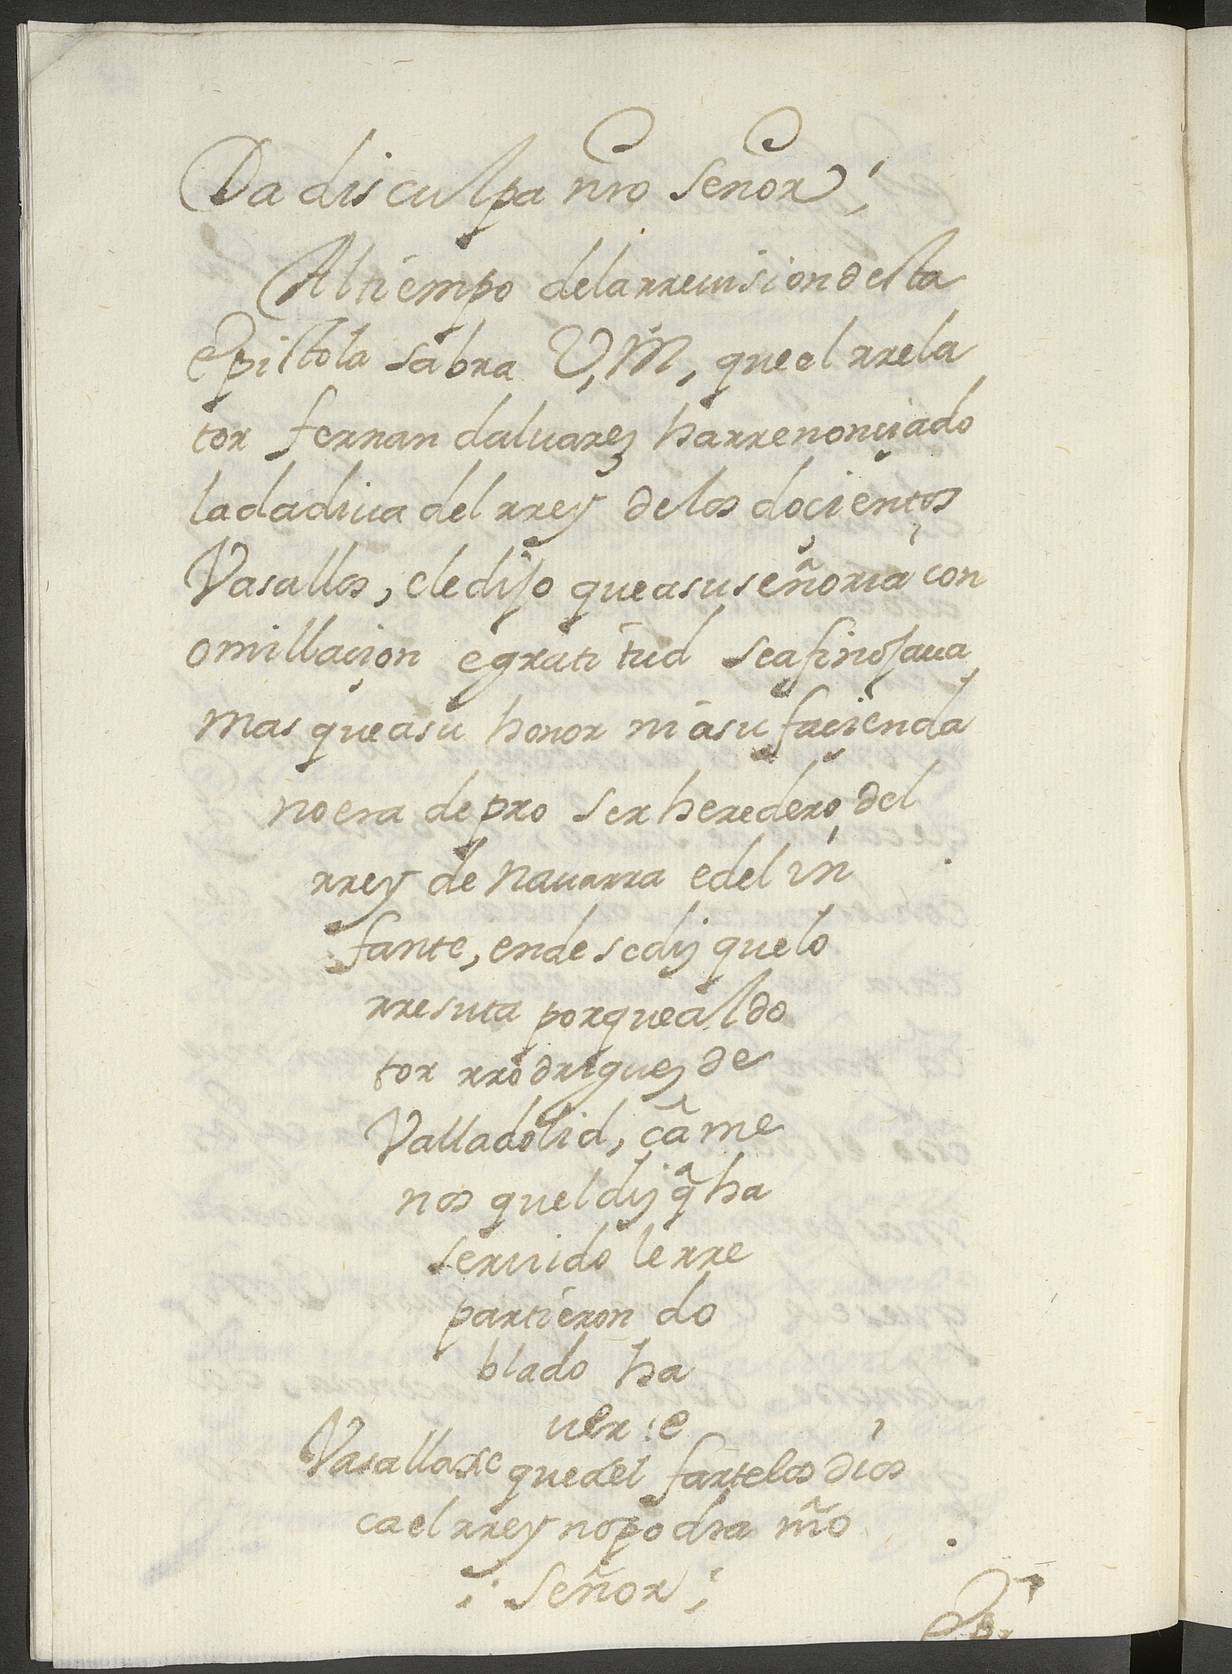 Da disculpa nro Señor
Al tiempo delarreuision desta
epistola sabra V,M, que el rrela
tor fernan daluarez harrenonçiado
ladadiua del rrey delos doçientos
Vasallos, eledijo queasuseñoria con
omillaçion egratitud seafinojaua
mas queasu honor ni asu façienda
noera depro ser heredero del
rrey de nauarra edel in
fante, ende sedij quelo
rresuta porqueal do
tor rrodriguez de
Valladolid, cã me
nos queldij q̃ ha
seruido lerre
partieron do
blado ha
uer : e
Vasallos quedel fartelos dios
cael rrey nopodra nr̃o
Señor